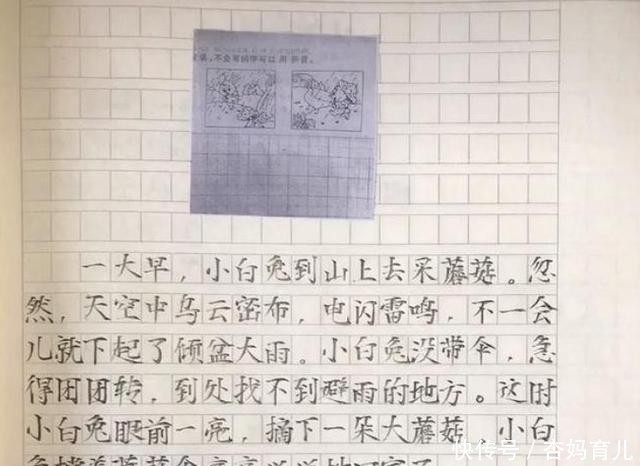 不会写的字可以 用 拼音。
一大早，小白兔到山上去采蘑菇。忽
然，天空中乌云密布，电闪雷鸣，不一会
儿就下起了倾盆大雨。小白兔没带伞，急
得团团转，到处找不到避雨的地方。这时
小白兔眼前一亮，摘下一朵大蘑菇，小白
兔撑着蘑菇伞高高兴兴地回家了
快传号／杏妈育儿